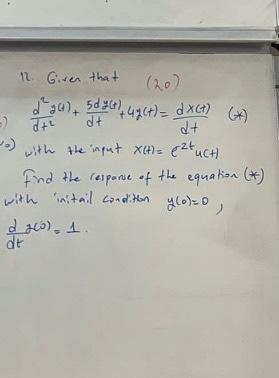 12. Given that (20)
d²y(t)/dt² + 5dy(t)/dt + 4y(t) = dx(t)/dt (*)
with the input x(t) = e^2t u(t)
Find the response of the equation (*)
with initail condition y(0)=0,
d/dt y(0) = 1.